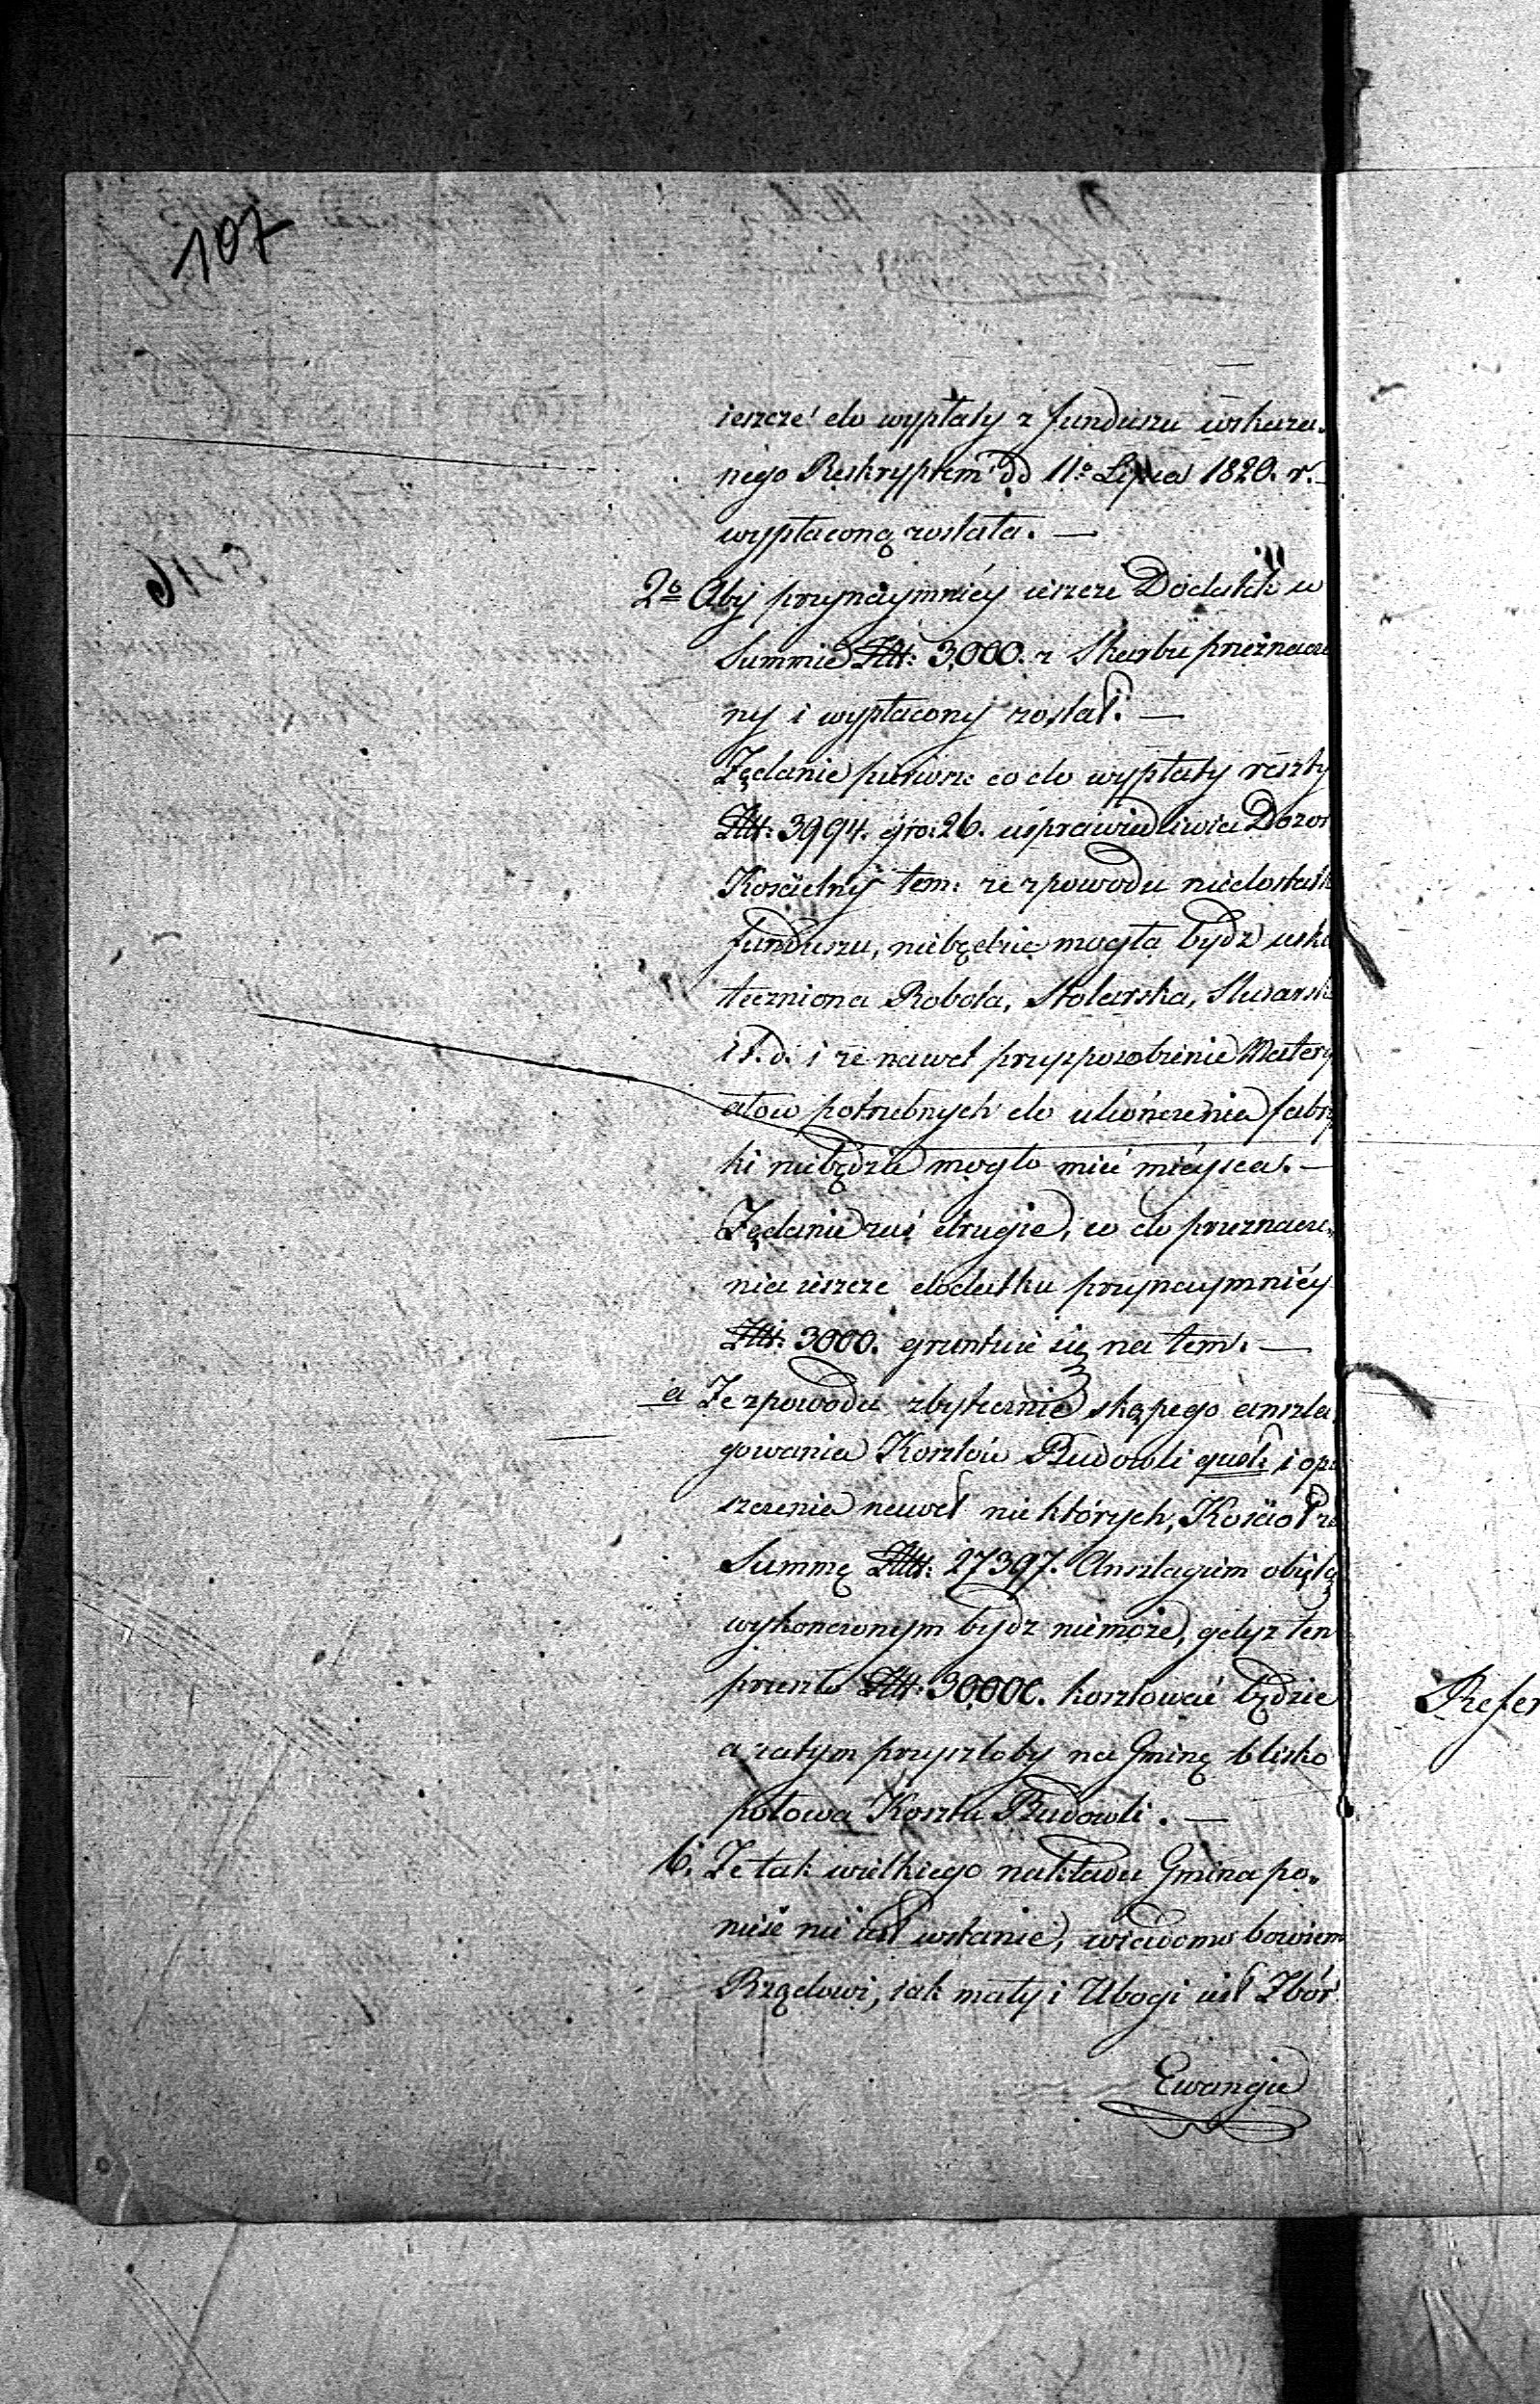 107
ieszcze do wypłaty z funduszu wskaza-
nego Reskryptem dd 11o Lipca 1820. r.
wypłaconą została. —
2o Aby przynaymniéy ieszcze Dodatek w
Summie Złt: 3,000. z Skarbu przeznaczo
ny i wypłacony został. —
Żądanie pierwsze co do wypłaty reszty
Złt: 3994. gro: 26. usprawiedliwia Dozor
Kościelny tem: że zpowodu niedostatk
funduszu, niebędzie mogła bydź usku
teczniona Robota, Stolarska, Slusarsk
i t. d. i że nawet przysposobienie Matery
ałow potrzebnych do ukończenia fabry
ki niebędzie mogło mieć mieysca. —
Żądanie zaś drugie, co do przeznacze-
nia ieszcze dodatku przynaymniéy
Złt: 3000. gruntuie się na tem. —
a Że zpowodu zbytecznie skąpego anszla
gowania Kosztów Budowli quest: i opu
szczenia nawet niektórych, Kościoł za
Summę Złt: 27397. Anszlagiem obiętą
wykonczonym bydz niemoże, gdyz ten
przeszło Złt: 30,000. kosztować będzie
a zatym przyszłoby na Gminę blisko
połowa Kosztu Budowli. —
b. Że tak wielkiego nakładu Gmina po-
nieść nie iest wstanie, wiadomo bowiem
Rządowi, iak mały i Ubogi iest Zbór
Ewangie
Refer